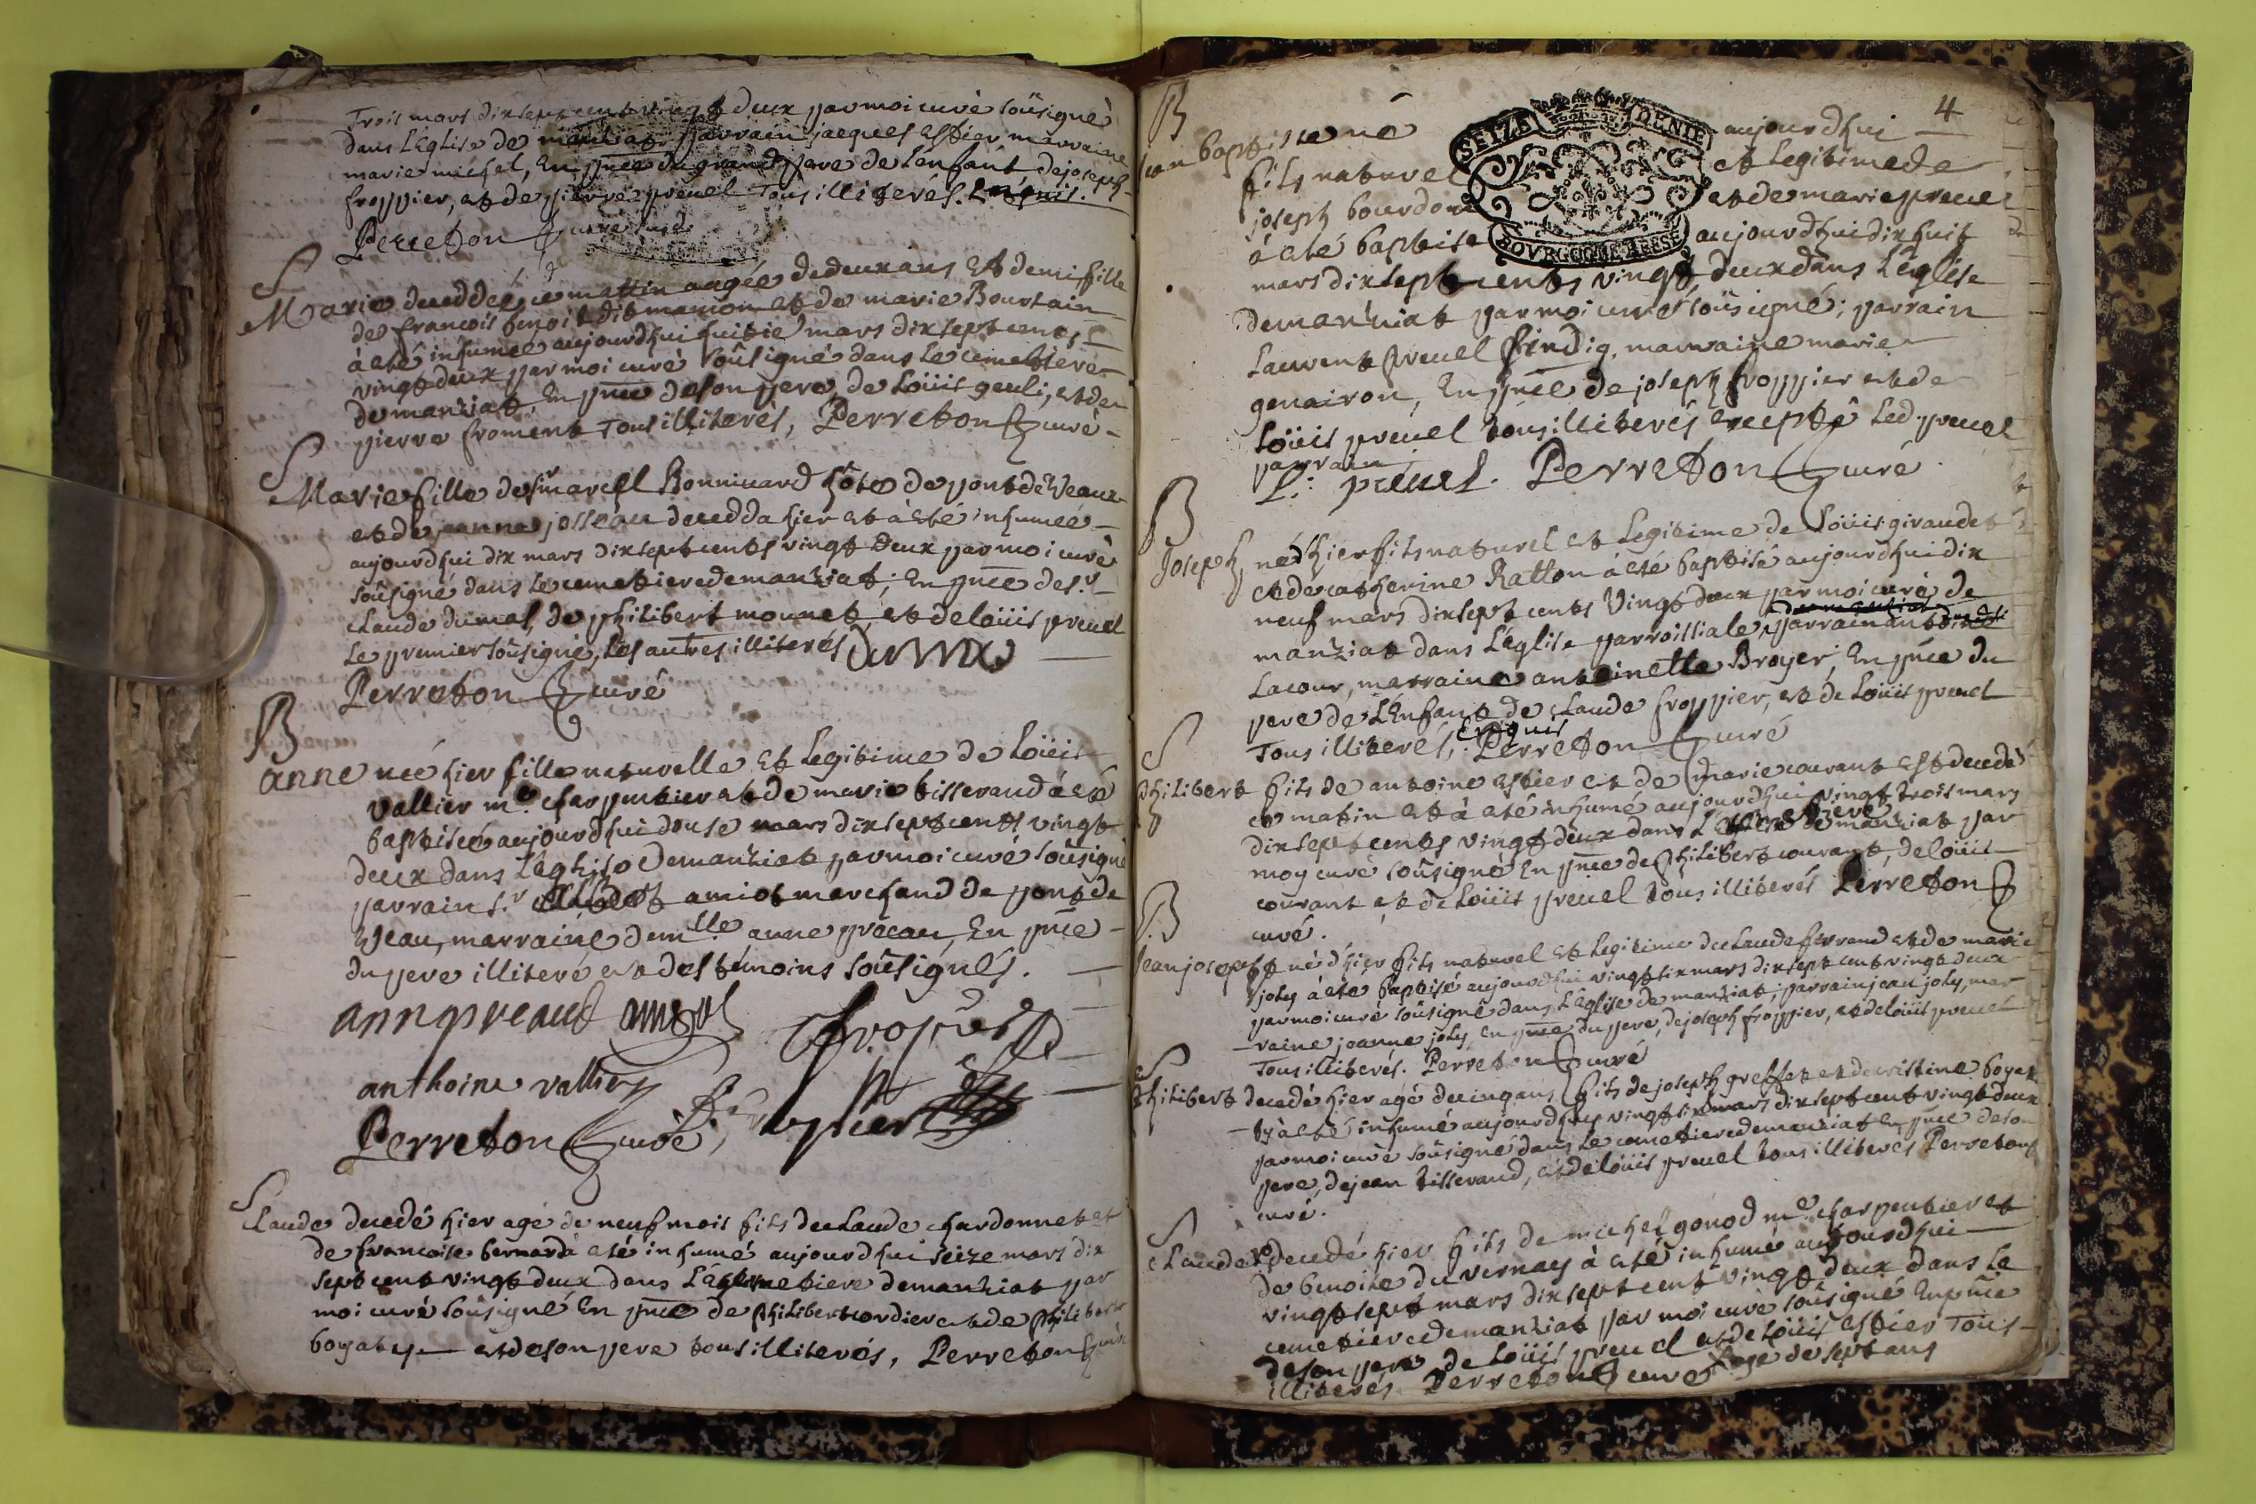 Trois mars dixsept cent vingt deux par moi curé soûsigné
dans L'Eglise de manziat parrain jacques Estier marraine
marie michel, En pnce du grand pere de l'enfant de joseph
froppier, et de pierre preuel Tous illiterés. Enquis.
Perreton curé
S
Marie decedée ce mattin aagée de deux ans et demi fille
de francois benoit dit manion et de marie Bourtain
à esté inhumée aujourdhui huitie mars dixsept cent
vingt deux par moi curé soûsigné dans le cemetiere
de manziat, En pnce de son pere de Loüis geuli, et de
pierre froment Tous illiterés, Perreton curé
S
Marie fille de sr marcel Bonnivard hôte de pont de Veaux
et de jeanne jolleau deceda hier et à esté inhumée
aujourdhui dix mars dixsept cents vingt deux par moi curé
soûsigné dans le cemetiere de manziat; En pnce de sr
claude dumas, de philibert monnet et de loüis preuel
Le premier soûsigné, Les autres illiterés Dumas
Perreton curé
B
anne née hier fille naturelle et Legitime de Loüis
Vallier me charpentier et de marie tisserand à esté
baptiseé aujourdhui douse mars dixsept cents vingt
deux dans L'église de manziat par moi curé soûsigné
parrain s.r amiot marchand de pont de
Veau, marraine demlle anne preau, En pnce
du pere illiteré et des témoins soûsignés.
ann preaud amiot froppier
anthoine vallier
Perreton curé,
S
Claude decedé hier agé de neuf mois fils de claude chardonnet et
de francoise bernard à esté inhumé aujourdhui seize mars dix
sept cent vingt deux dans Le cemetiere de manziat par
moi curé soûsigné En pnce de philibert cordier et de philibert
boyat et de son pere tous illiterés, Perreton curé
4
B
jean baptiste né aujourdhui
SEIZE DENIE
BOVRGOGNE BRESSE
fils naturel et Legitime de
joseph bourdon et de marie preuel
à esté baptisé aujourdhui dix huit
mars dixsept cents vingt deux dans L'église
de manziat par moi curé soûsigné; parrain
Laurent preuel sindig, marraine marie
genairon, En pnce de joseph froppier et de
Loüis preuel tous illiterés Excepté Led preuel
parrain
L: preuel. Perreton curé
B
Joseph né d'hier fils naturel et Legitime de Loüis giraudet
et de catherine Ratton à esté baptisé aujourdhui dix
neuf mars dixsept cents Vingt deux par moi curé de
manziat dans L'église parroissiale, parrain
Lacour, marraine antoinette Broyer, En pnce du
pere de L'Enfant de claude froppier, et de Loüis preuel
Tous illiterés, Enquis Perreton curé
S
philibert fils de antoine Estier et de marie courant est decedé
ce matin et à esté inhumé aujourdhui vingt trois mars
dixsept cents vingt deux dans Le cemetiere de manziat par
moy curé soûsigné En pnce de philibert courant, de loüis
courant et de Loüis preuel tous illiterés Perreton
curé.
B
Jean joseph né d'hier fils naturel et Legitime de claude ferrand et de marie
joly à esté baptisé aujourdhui vingt six mars dixsept cent vingt deux
par moi curé soûsigné dans L'Eglise de manziat, parrain jean joly, mar-
raine jeanne joly, En pnce du pere, de joseph froppier, et de loüis preuel
Tous illiterés. Perreton curé
S
philibert decedé hier agé de cinq ans fils de joseph greffet et de cristine boyat
à esté inhumé aujourdhuy vingt six mars dixsept cent vingt deux
par moi curé soûsigné dans Le cemetiere de manziat En pnce de son
pere, de jean tisserand, et de loüis preuel tous illiterés Perreton
curé.
S
Claude decedé hier fils de michel gonod me charpentier et
de benoite du vernay à esté inhumé aujourdhui
vingt sept mars dixsept cent vingt deux dans Le
cemetiere de manziat par moi curé soûsigné En pnce
de son pere de Loüis preuel et de Loüis Estier Tous
illiterés Perreton curé agé de sept ans